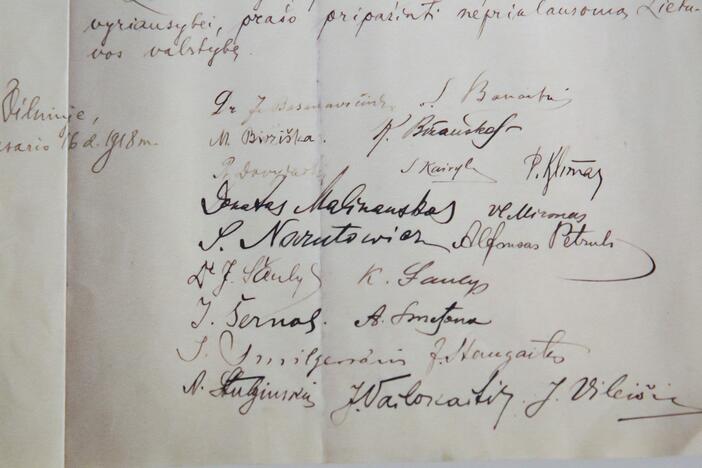 vyriausybei, prašo pripažinti nepriklausomą Lietu-
vos valstybę.
Vilniuje,
vasario 16 d. 1918 m.
Dr J. Basanavičius S. Banaitis
M. Biržiška. K. Bizauskas
P. Dovydaitis S Kairys P. Klimas
Donatas Malinauskas Vl. Mironas
S. Narutowicz Alfonsas Petrulis
Dr J. Šaulys K. Šaulys
J. Šernas. A. Smetona
J. Smilgevičius J. Staugaitis
A. Stulginskis J. Vailokaitis. J. Vileišis